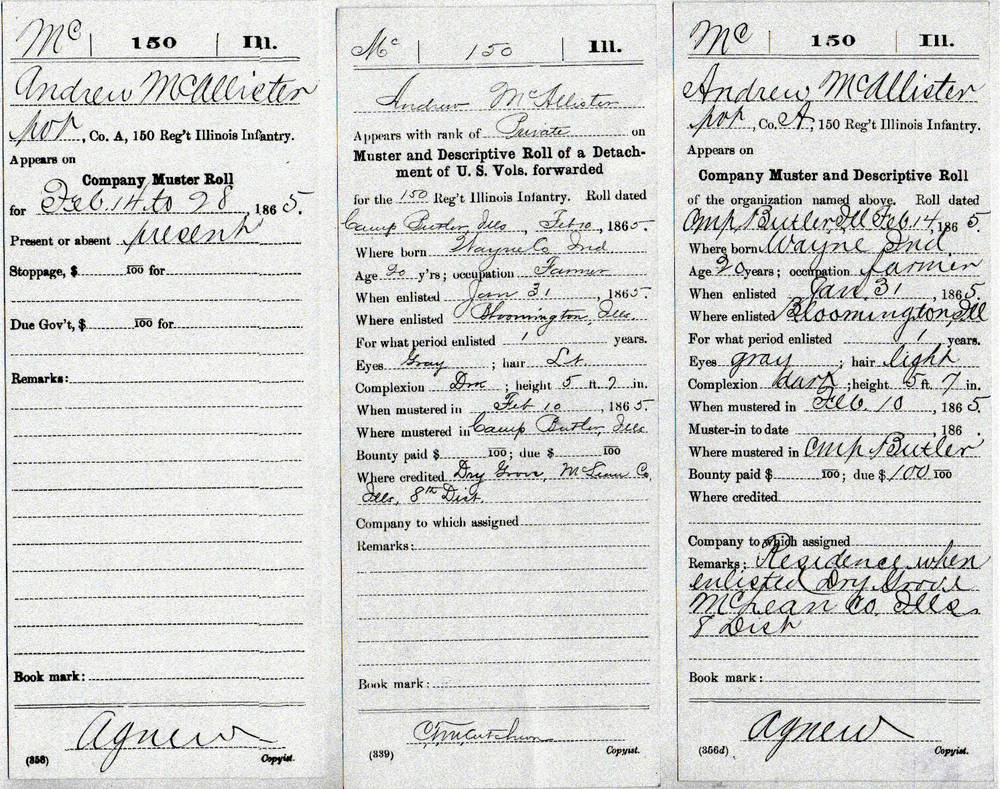 Mc | 150 | Ill.
Andrew McAllister
pvt, Co. A, 150 Reg't Illinois Infantry.
Appears on
Company Muster Roll
for Feb. 14 to 28, 1865.
Present or absent present
Stoppage, $ 100 for
Due Gov't, $ 100 for
Remarks:
Book mark:
Agnew
(358) Copyist.
Mc | 150 | Ill.
Andrew McAllister
Appears with rank of Private on
Muster and Descriptive Roll of a Detach-
ment of U. S. Vols. forwarded
for the 150 Reg't Illinois Infantry. Roll dated
Camp Butler, Ills, Feb 10, 1865.
Where born Wayne Co Ind
Age 20 y'rs; occupation Farmer
When enlisted Jan 31, 1865.
Where enlisted Bloomington, Ills.
For what period enlisted 1 years.
Eyes Gray; hair Lt
Complexion Drk; height 5 ft. 7 in.
When mustered in Feb 10, 1865.
Where mustered in Camp Butler, Ills
Bounty paid $ 100; due $ 100
Where credited Dry Grove, McLean Co,
Ills, 8th Dist.
Company to which assigned
Remarks:
Book mark:
(339) Copyist.
Mc | 150 | Ill.
Andrew McAllister
pvt, Co. A, 150 Reg't Illinois Infantry.
Appears on
Company Muster and Descriptive Roll
of the organization named above. Roll dated
Cmp Butler Ill Feb. 14, 1865.
Where born Wayne Ind
Age 20 years; occupation farmer
When enlisted Jan. 31, 1865.
Where enlisted Bloomington, Ill
For what period enlisted 1 years.
Eyes gray; hair light
Complexion dark; height 5 ft. 7 in.
When mustered in Feb. 10, 1865.
Muster-in to date , 186 .
Where mustered in Cmp Butler
Bounty paid $ 100; due $ 100 100
Where credited
Company to which assigned
Remarks: Residence when
enlisted Dry Grove
McLean Co. Ills.
8 Dist
Book mark:
Agnew
(356d) Copyist.